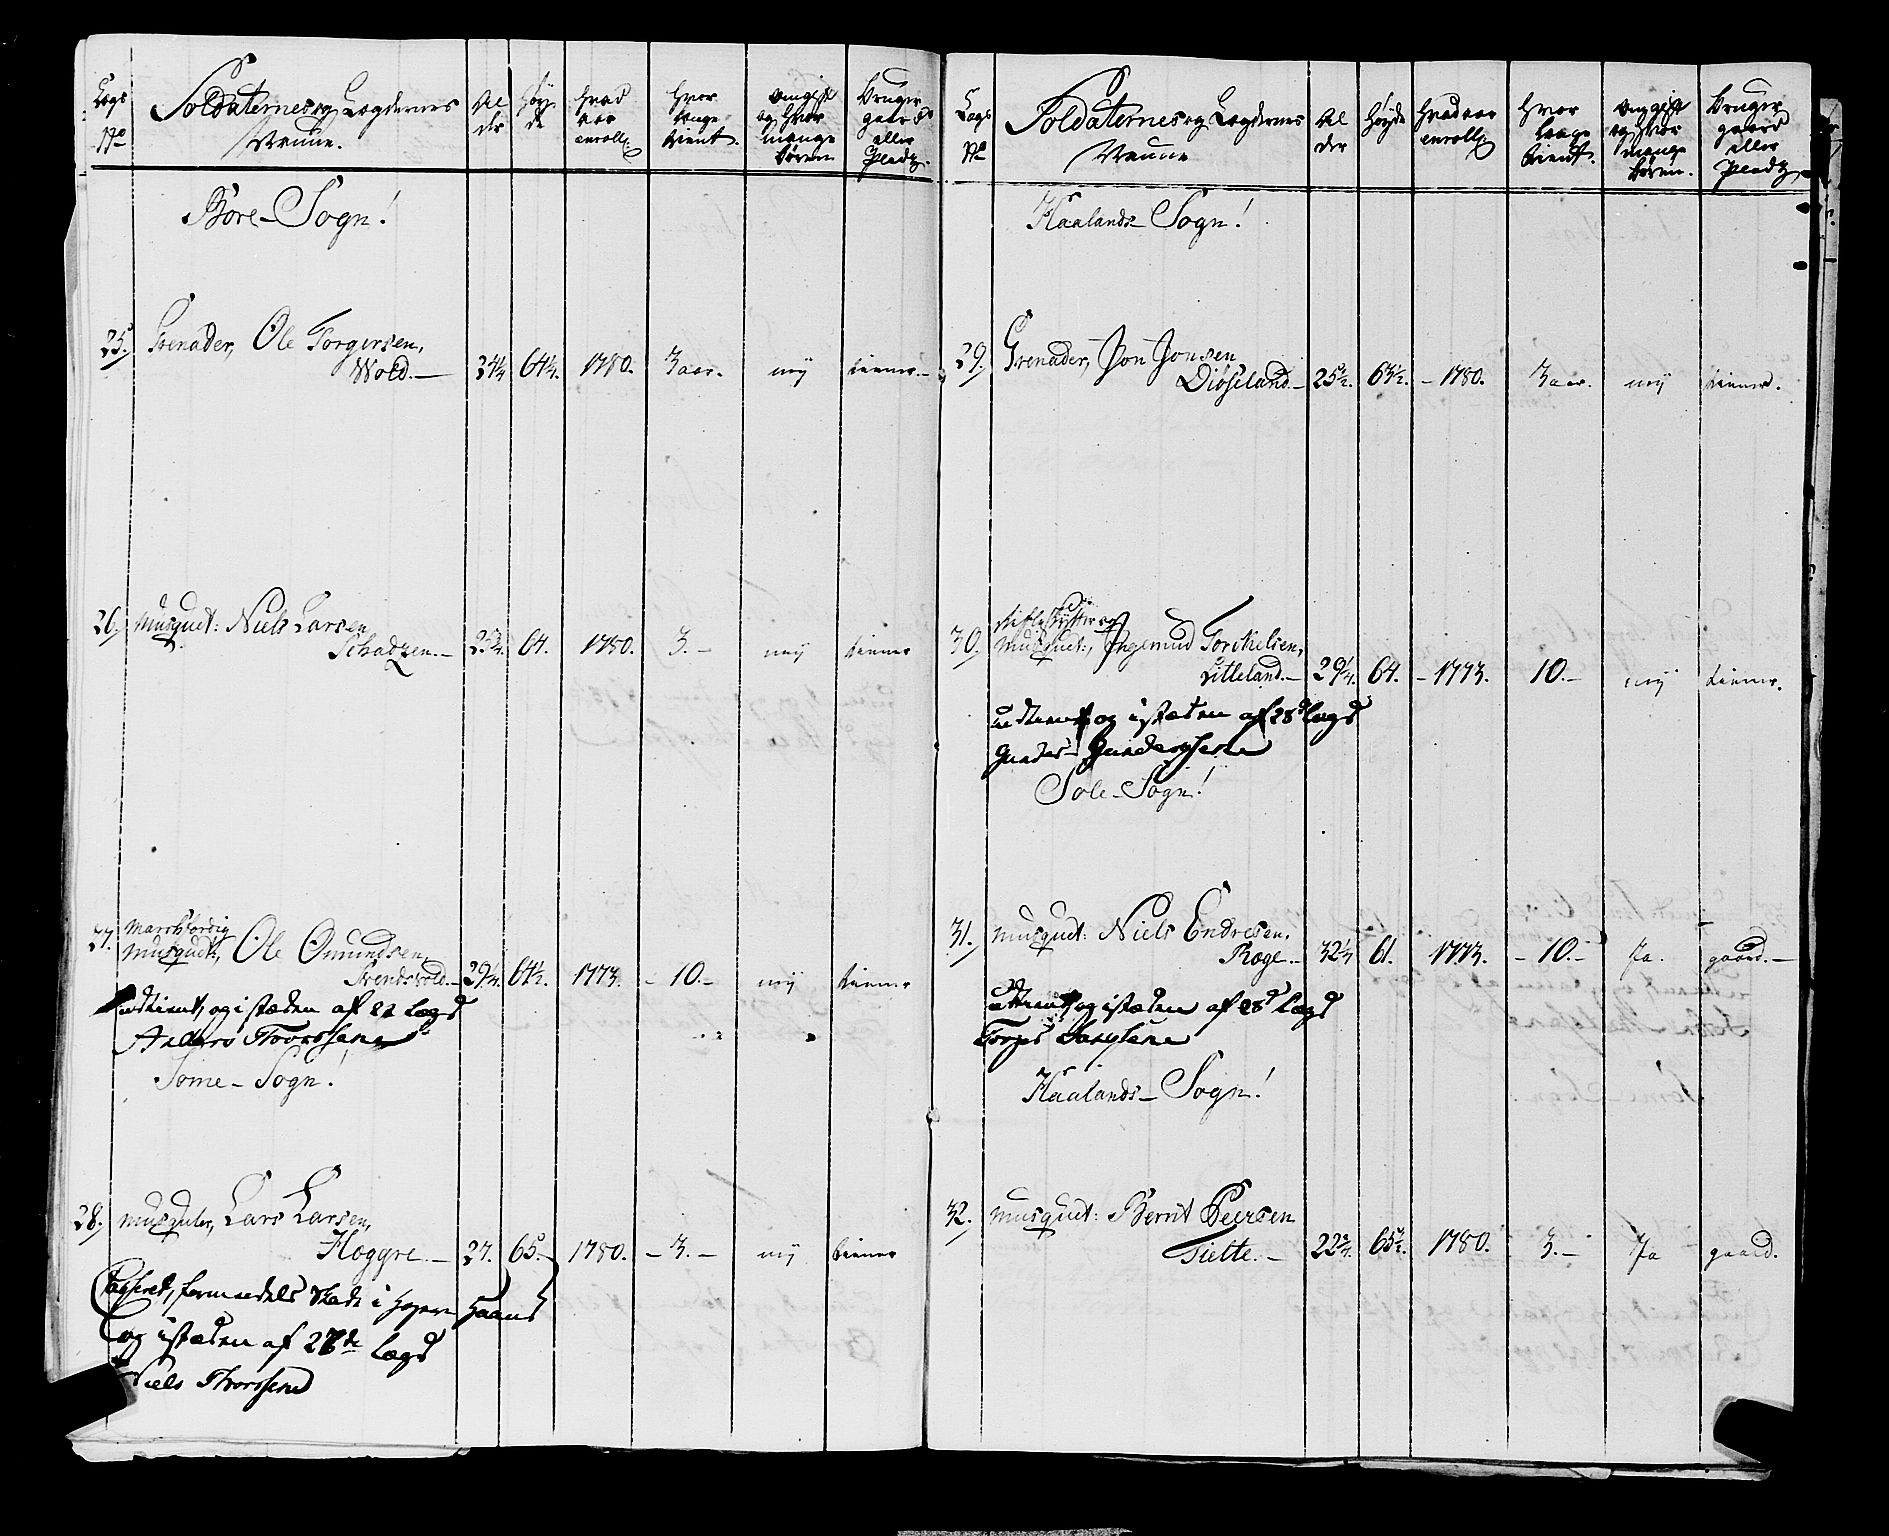 Lægs No | Soldaternes og Lægdernes Navne. | Alder | Høyde | hvad aar enroll: | hvor længe tient. | om gift og hvor mange børen | bruger gaard eller Pladz.
Bore - Sogn!
25. Grenader, Ole Torgersen,
Wold. — 24¼ 64¼. 1780. 3 aar. ney tiener. —
26. Musquet: Niels Larsen
Schadzen. — 25¾. 64. 1780. 3. — ney tiener
27. Marshfordig
Musquet:, Ole Omundsen,
29¼. 64½. 1773. — 10. — ney tiener
udtient, og i stæden af 22 Lægd
Anders Thorssene
Some - Sogn!
28. Musquter, Lars Larsen,
Hoggre. — 27. 65. 1780. — 3. — ney tiener
Casseret, formedelst Skade i Haand
og i stæden af 27de Lægd
Niels Thorssene
Lægs No | Soldaternes og Lægdernes Navne | Alder | Høyde | hvad aar enroll: | hvor længe tient. | om gift og hvor mange børen. | bruger gaard eller Pladz,
Haalands - Sogn!
29. Grenader, Jon Jonsen
Diøseland. — 25½. 63½. — 1780. 3 aar. ney tiener.
30. Musquet:, Ingemund Torchelsen,
Litleland. — 29¼. 64. — 1773. 10. — ney tiener.
udtient og i stæden af 28d Lægd
Gunder Gundersene
Sole - Sogn!
31. Musquet: Niels Endresen,
Roge. — 32¼ 61. 1773. — 10. — Ja. gaard. —
udtient og i stæden af 28d Lægd
Haalands - Sogn!
32. Musquet: Bernt Peersen
Tielte. — 22¾. 65½. 1780. 3. — Ja gaard.